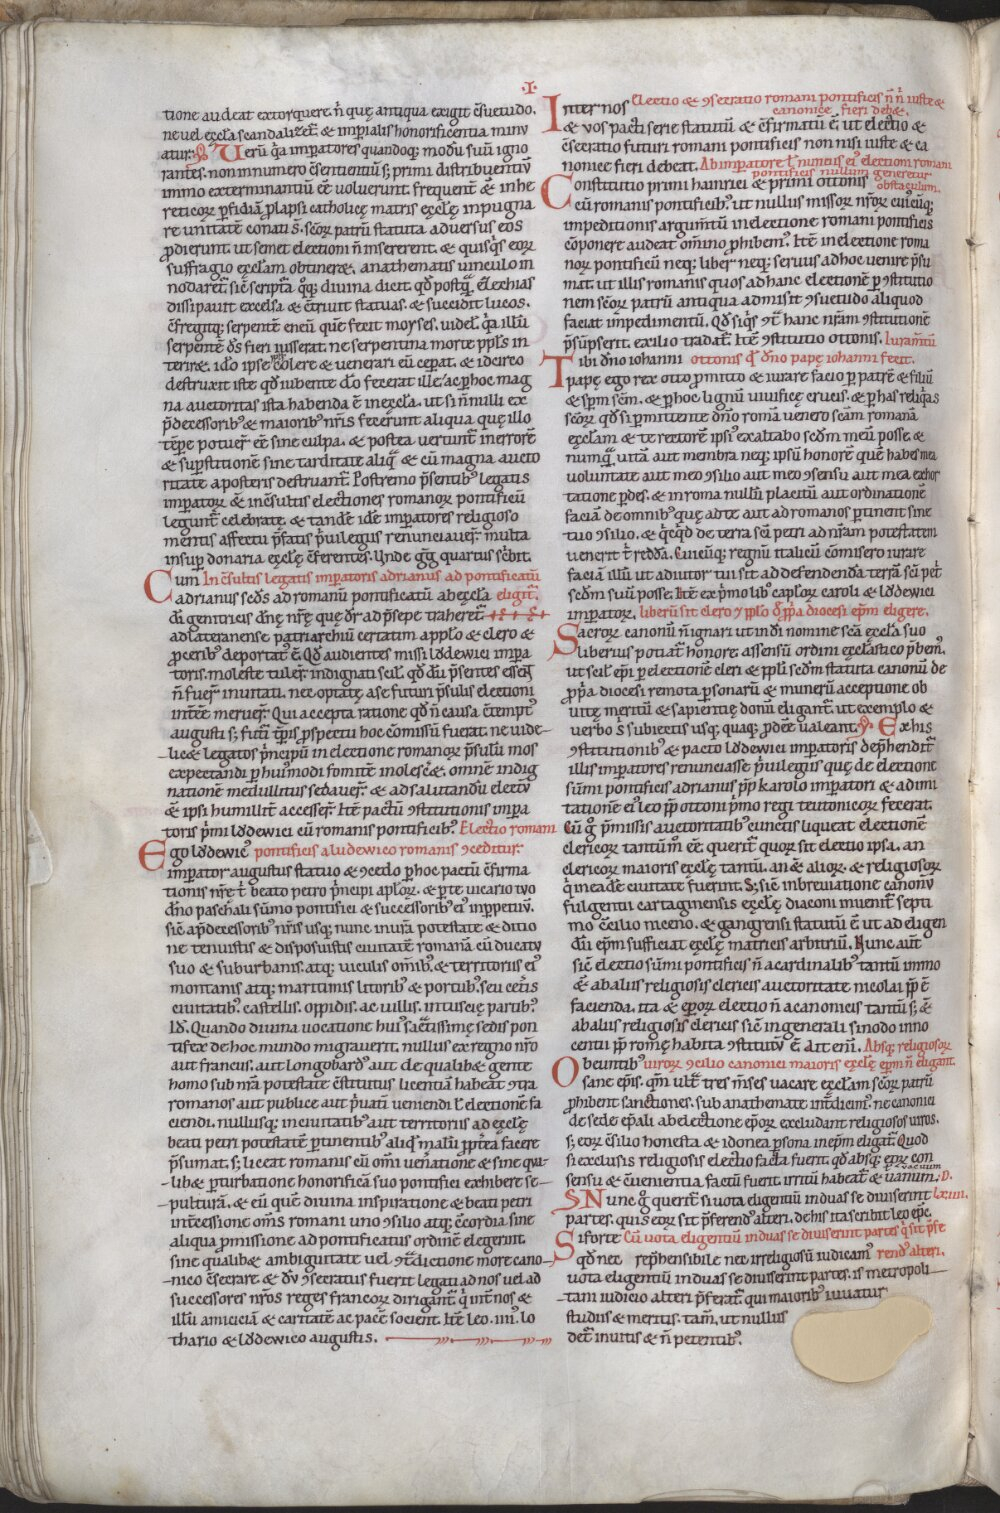 .I.
tione audeat extorquere. n̄ quę antiqua exigit c̄suetudo.
ne uel ęccl̄a scandalizet᷑ & imꝑialis honorificentia minu
atur. Uerū q̓a imꝑatores quandoq; modū suū igno
rantes. non in numero c̄sentientiū s; primi distribuentiū
immo exterminantiū ēē uoluerunt. frequent᷑ & in he
reticoꝝ ꝑfidiā ꝓlapsi catholicę matris ęccl̄ę inpugna
re unitatē conati s̄. sc̄oꝝ patrū statuta aduersus eos
ꝓdierunt. ut semet electioni n̄ insererent. & quisq̓s eoꝝ
suffragio ęccl̄am obtineret. anathematis uinculo in
nodaret᷑.
dissipauit excelsa & c̄triuit statuas. & succidit lucos.
c̄fregitq; serpentē eneū quē fecit moyses. uidel᷑. q̓a illū
serpentē dn̄s fieri iusserat. ne serpentina morte ppl̄s in
terir&. id̄o ipse colere & uenerari eū cęperat. & idcirco
destruxit iste qd̄ iubente dō fecerat ille. ac ꝑ hoc mag
na auctoritas ista habenda ē in ęccl̄a. ut si n̄nulli ex
p̄decessoribꝰ & maioribꝰ nr̄is fecerunt aliqua quę illo
tēpe potuer̄ ēē sine culpa. & postea uertunt᷑ in errorē
& suꝑstitionē sine tarditate aliq̓ & cū magna aucto
ritate a posteris destruant᷑. Postremo p̄sentibꝰ legatis
imꝑatoꝝ & inc̄sultis electiones romanoꝝ pontificū
legunt᷑ celebratę. & tandē idē imꝑatores religioso
mentis affectu p̄fatis p̄uilegiis renunciauer̄. multa
insuꝑ donaria ęccl̄ę c̄ferentes. Unde gg̓ quartus sc̄bit.
Cum In c̄sultis legatis imꝑatoris adrianus ad pontificatū
adrianus sc̄ds ad romanū pontificatū ab ęccl̄a eligit᷑.
dī genitricis dn̄ę nr̄ę que dr̄ ad p̄sepe traheret᷑
ad lateranense patriarchiū certatim a pplo & clero &
ꝓceribꝰ deportatꝰ ē. Qd̄ audientes missi lodewici imꝑa
toris. moleste tuler̄. indignati scil᷑. qd̄ dū p̄sentes essent
n̄ fuer̄ inuitati. nec optatę a se futuri p̄sulis electioni
int̄ēē meruer̄. Qui accepta ratione qd̄ n̄ causa c̄temptꝰ
augusti s; futuri tp̄ris ꝓspectu hoc c̄missū fuerat. ne uide
licet legatos p̄ncipū in electione romanoꝝ p̄sulū mos
expectandi ꝑ huiꝰmodi fomitē inolescer&. omnē indig
nationē medullitus sedauer̄. & ad salutandū electū
& ipsi humilit̄ accesser̄. Itē pactū ↄstitutionis imꝑa
toris p̄mi lodewici cū romanis pontificibꝰ. Electio romani
Ego lodewicꝰ pontificis a ludewico romanis ↄceditur.
imꝑator augustus statuo & ↄcedo ꝑ hoc pactū c̄firma
tionis nr̄ę t̄ beato petro p̄ncipi apl̄oꝝ. & ꝑ te uicario tuo
dn̄o paschali sūmo pontifici & successoribꝰ eiꝰ in ꝑpetuū.
sic̄ a p̄decessoribꝰ nr̄is usq; nunc in ura̅ potestate & ditio
ne tenuistis & disposuistis ciuitatē romanā cū ducatu
suo & suburbanis. atq; uiculis om̄ibꝰ. & territoriis eiꝰ
montanis atq; maritimis litoribꝰ & portubꝰ. seu cet̄is
ciuitatibꝰ. castellis. oppidis. ac uillis. in tuscię partibꝰ.
Id̄. Quando diuina uocatione huiꝰ sac̄tissimę sedis pon
tifex de hoc mundo migrauerit. nullus ex regno nr̄o
aut francus. aut longobardꝰ aut de qualib& gente
homo sub nr̄a potestate c̄stitutus licentiā habeat ↄtra
romanos aut publice aut p̄uati ueniendi l̄ electionē fa
ciendi. nullusq; in ciuitatibꝰ aut territoriis ad ęccl̄ę
beati petri potestatē ꝑtinentibꝰ aliq̓ malū ꝓpt̄ea facere
p̄sumat. s; liceat romanis cū om̄i uen̄atione & sine qua
lib& ꝑturbatione honorificā suo pontifici exhibere se
pulturā. & eū quē diuina inspiratione & beati petri
int̄cessione om̄s romani uno ↄsilio atq; c̄cordia sine
aliqua promissione ad pontificatus ordinē elegerint.
sine qualib& ambiguitate uel ↄt̄dictione more cano
nico c̄secrare & dū ↄsecratus fuerit legati ad nos uel ad
successores nr̄os reges francoꝝ dirigant᷑. q̓ int̄ nos &
illū amiciciā & caritatē ac pacē socient. Itē leo .iiii. lo
thario & lodewico augustis.
Inter nos Electio & ↄsecratio romani pontificis n̄ n̄ iuste &
canonice fieri deb&.
& uos pacti serie statutū & c̄firmatū ē. ut electio &
c̄secratio futuri romani pontificis non nisi iuste & ca
nonice fieri debeat. Ab imꝑatore l̄ nunciis eiꝰ electioni romani
pontificis nullum generetur
obstaculum.
Constitutio primi hainrici & primi ottonis
cū romanis pontificibꝰ. ut nullus missoꝝ nr̄oꝝ cuiꝰcūq;
impeditionis argum̄tū in electione romani pontificis
c̄ponere audeat om̄ino ꝓhibemꝰ. Itē in electione roma
noꝝ pontificū neq; liber neq; seruus ad hoc uenire p̄su
mat. ut illis romanis quos ad hanc electionē ꝑ ↄstitutio
nem sc̄oꝝ patrū antiqua admisit ↄsuetudo aliquod
faciat impedimentū. Qd̄ siq̓s ↄt̄ hanc nr̄am ↄstitutionē
p̄sūpserit. exilio tradat᷑. Itē ↄstitutio ottonis. Iuram̄tū
Tibi dn̄o iohanni ottonis qd̄ dn̄o papę iohanni fecit.
papę ego rex otto ꝓmitto & iurare facio ꝑ patrē & filiū
& sp̄m sc̄m. & ꝑ hoc lignū uiuificę crucis. & ꝑ has reliq̓as
sc̄oꝝ qd̄ si ꝑmittente dn̄o romā uenero sc̄am romanā
ęccl̄am & te rectorē ipsiꝰ exaltabo sc̄dm meū posse. &
numq̓ uitā aut membra neq; ipsū honorē quē habes mea
uoluntate aut meo ↄsilio aut meo ↄsensu aut mea exhor
tatione ꝑdes. & in roma nullū placitū aut ordinationē
faciā de omnibꝰ quę ad te aut ad romanos ꝑtinent sine
tuo ↄsilio. & q̓cq̓d de terra sc̄i petri ad nr̄am potestatem
uenerit t̄ reddā. Cuicūq; regnū italicū cōmisero iurare
faciā illū ut adiutor tui sit ad defendendā terrā sc̄i pet̄
sc̄dm suū posse. Itē ex p̄mo libꝰ caploꝝ caroli & lodewici
imꝑatoꝝ. liberū sit clero & ppl̄o d̄ ꝓpria diocesi ep̄m eligere.
Sacroꝝ canonū n̄ ignari ut in dī nomine sc̄a ęccl̄a suo
liberius potiat᷑ honore assensū ordini ęccl̄astico p̄bem̄.
ut scil᷑. ep̄i ꝑ electionē cleri & ppl̄i sc̄dm statuta canonū de
ꝓpria diocesi remota ꝑsonarū & munerū acceptione ob
uitę meritū & sapientię donū eligant᷑. ut exemplo &
uerbo s̄ subiectis usq; quaq; ꝓdēē ualeant. Ex his
ↄstitutionibꝰ & pacto lodewici imꝑatoris dep̄hendit᷑
illis imꝑatores renunciasse p̄uilegiis quę de electione
sūmi pontificis adrianus pp̄ karolo imꝑatori & ad imi
tationē eiꝰ leo pp̄ ottoni p̄mo regi teutonicoꝝ fecerat.
Cū g̓ p̄missis auctoritatibꝰ cunctis liqueat electionē
clericoꝝ tantūm̄ ēē. querit᷑ quoꝝ sit electio ipsa. an
clericoꝝ maioris ęccl̄ę tantū. an & alioꝝ. & religiosoꝝ
q̓ in eadē ciuitate fuerint. S; sic̄ in breuiatione canonū
fulgentii cartaginensis ęccl̄ę diaconi inuenit᷑ septi
mo c̄cilio niceno. & gangrensi statutū ē ut ad eligen
dū ep̄m sufficiat ęccl̄ę matricis arbitriū. Nunc aūt
sic̄ electio sūmi pontificis n̄ a cardinalibꝰ tantū immo
& ab aliis religiosis clericis auctoritate nicolai pp̄ ē
facienda. ita & ep̄oꝝ electio n̄ a canonicis tantū s; &
ab aliis religiosis clericis sic̄ in generali sinodo inno
centii pp̄ romę habita ↄstitutū ē. Ait eni. Absq; religiosoꝝ
Obeuntibꝰ uiroꝝ ↄsilio canonici maioris ęccl̄ę ep̄m n̄ eligant.
sane ep̄is. qm̄ ult̄ tres m̄ses uacare ęccl̄am sc̄oꝝ patrū
ꝓhibent sanctiones. sub anathemate int̄dicimꝰ. ne canonici
de sede ep̄ali ab electione ep̄oꝝ excludant religiosos uiros.
s; eoꝝ c̄silio honesta & idonea ꝑsona in ep̄m eligat᷑. Quod
si exclusis religiosis electio facta fuerit. qd̄ absq; eoꝝ con
sensu & c̄uenientia. factū fuerit. irritū habeat᷑ & uanum. D.
uacuum
Nunc g̓ querit᷑ si uota eligentiū in duas se diuiserint lxiii.
partes. quis eoꝝ sit p̄ferendꝰ alteri. de his ita scribit leo ep̄c.
Si forte Cū uota eligentiū in duas se diuiserint partes q̓ sit p̄fe
rendꝰ alteri.
qd̄ nec rep̄hensibile nec irreligiosū iudicamꝰ
uota eligentiū in duas se diuiserint partes. is metropoli
tani iudicio alteri p̄ferat᷑. qui maioribꝰ iuuatur
studiis & meritis. tam̄. ut nullus
det᷑ inuitis & n̄ petentibꝰ.